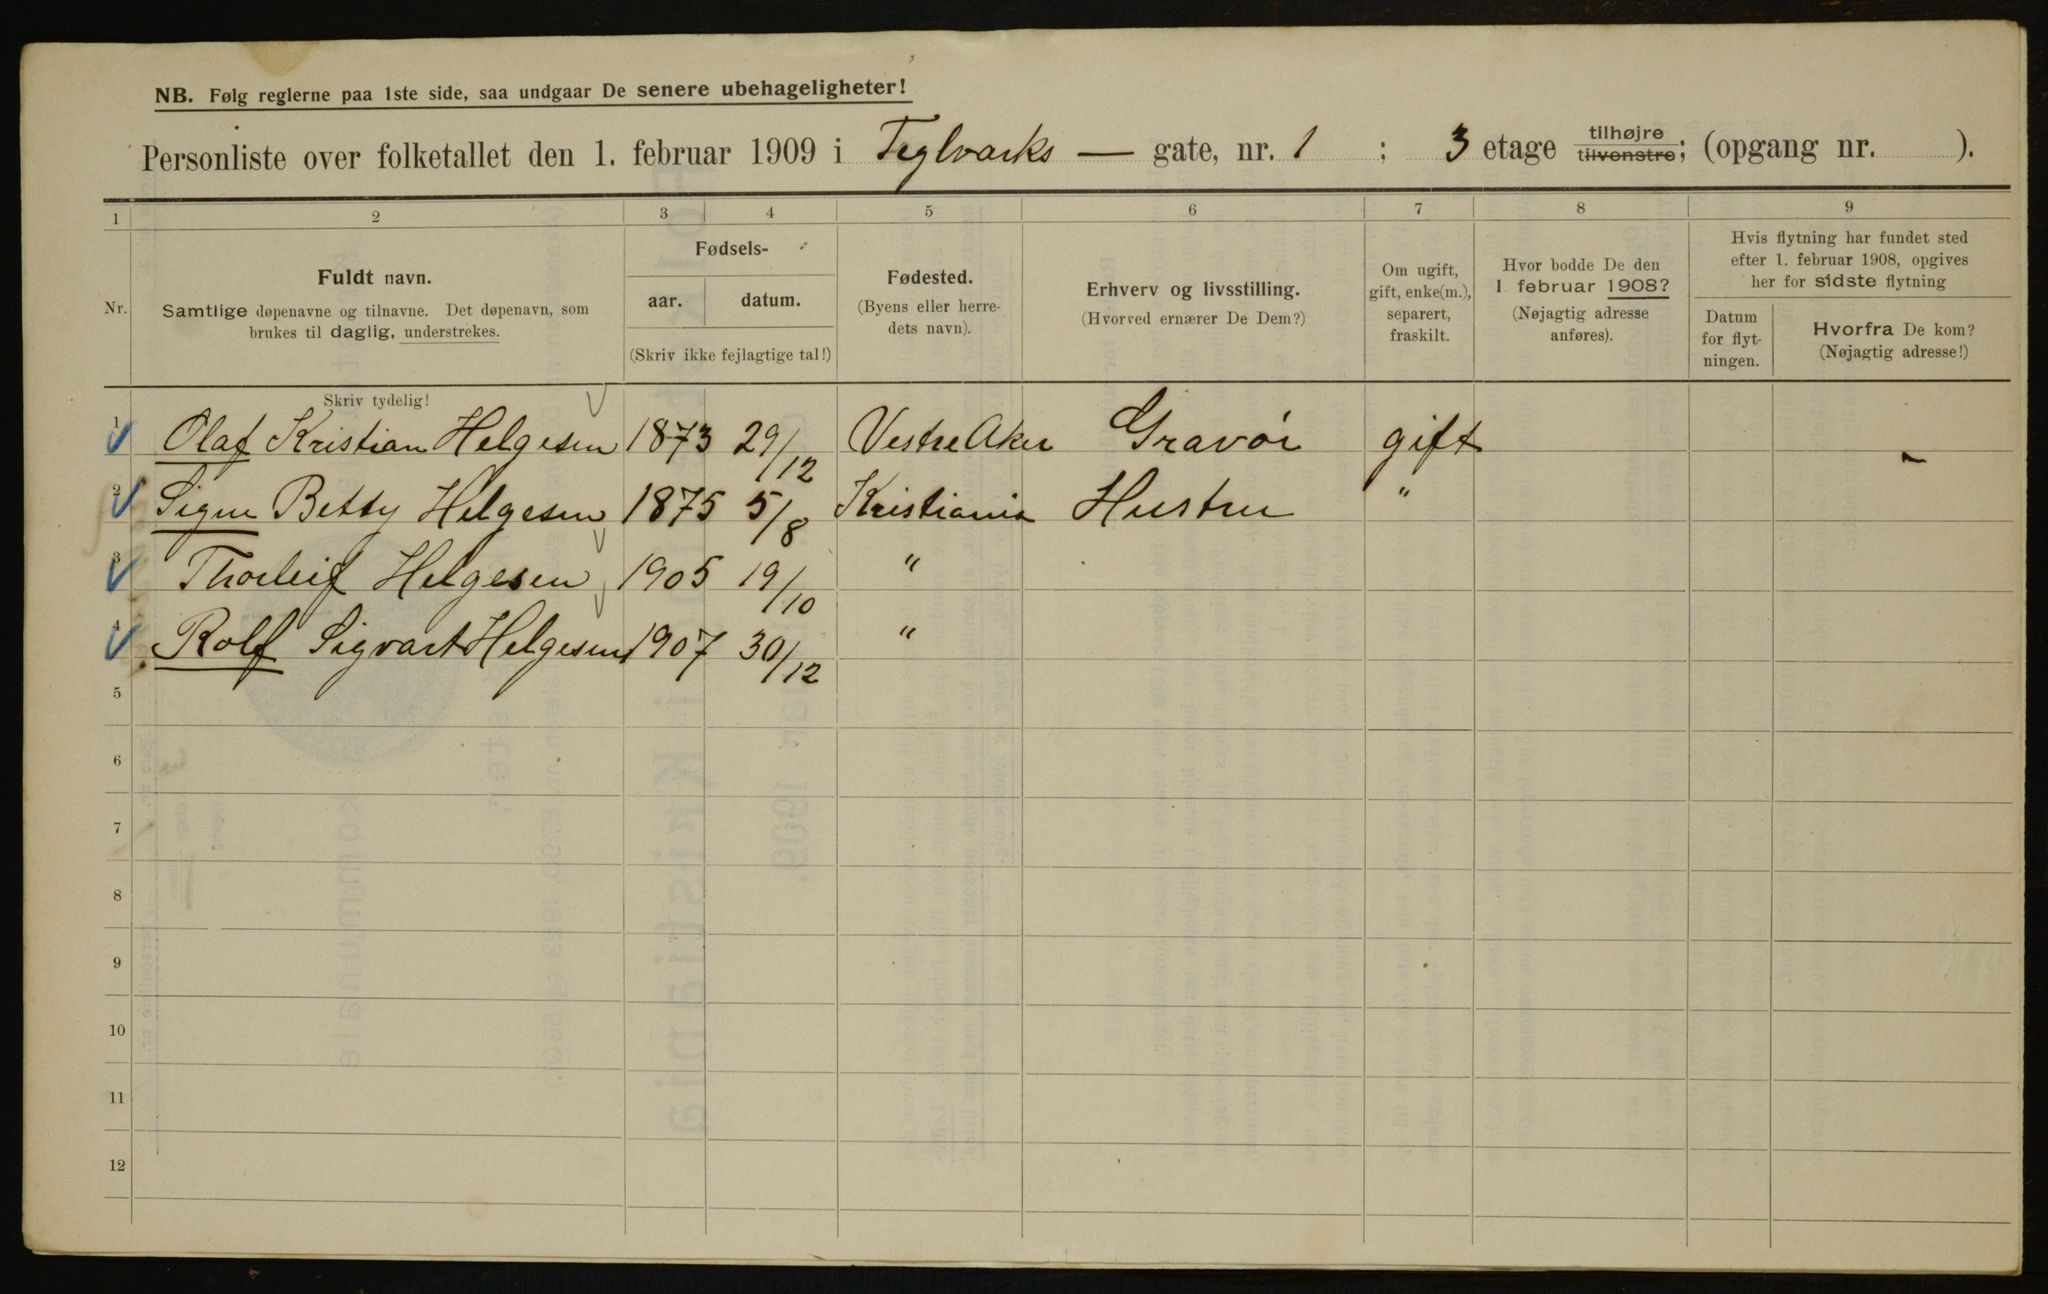 NB. Følg reglerne paa 1ste side, saa undgaar De senere ubehageligheter!
Personliste over folketallet den 1. februar 1909 i Teglværks — gate, nr. 1 ; 3 etage tilhøjre tilvenstre; (opgang nr. ).
1 2 3 4 5 6 7 8 9
Nr.
Fuldt navn.
Samtlige døpenavne og tilnavne. Det døpenavn, som
brukes til daglig, understrekes.
Fødsels-
aar. datum.
(Skriv ikke fejlagtige tal!)
Fødested.
(Byens eller herre-
dets navn).
Erhverv og livsstilling.
(Hvorved ernærer De Dem?)
Om ugift,
gift, enke(m.),
separert,
fraskilt.
Hvor bodde De den
1. februar 1908?
(Nøjagtig adresse
anføres).
Hvis flytning har fundet sted
efter 1. februar 1908, opgives
her for sidste flytning
Datum
for flyt-
ningen.
Hvorfra De kom?
(Nøjagtig adresse!)
Skriv tydelig!
1 Olaf Kristian Helgesen 1873 29/12 Vestre Aker Gravør gift -
2 Signe Betty Helgesen 1875 5/8 Kristiania Hustru "
3 Thorleif Helgesen 1905 19/10 "
4 Rolf Sigvart Helgesen 1907 30/12 "
5
6
7
8
9
10
11
12